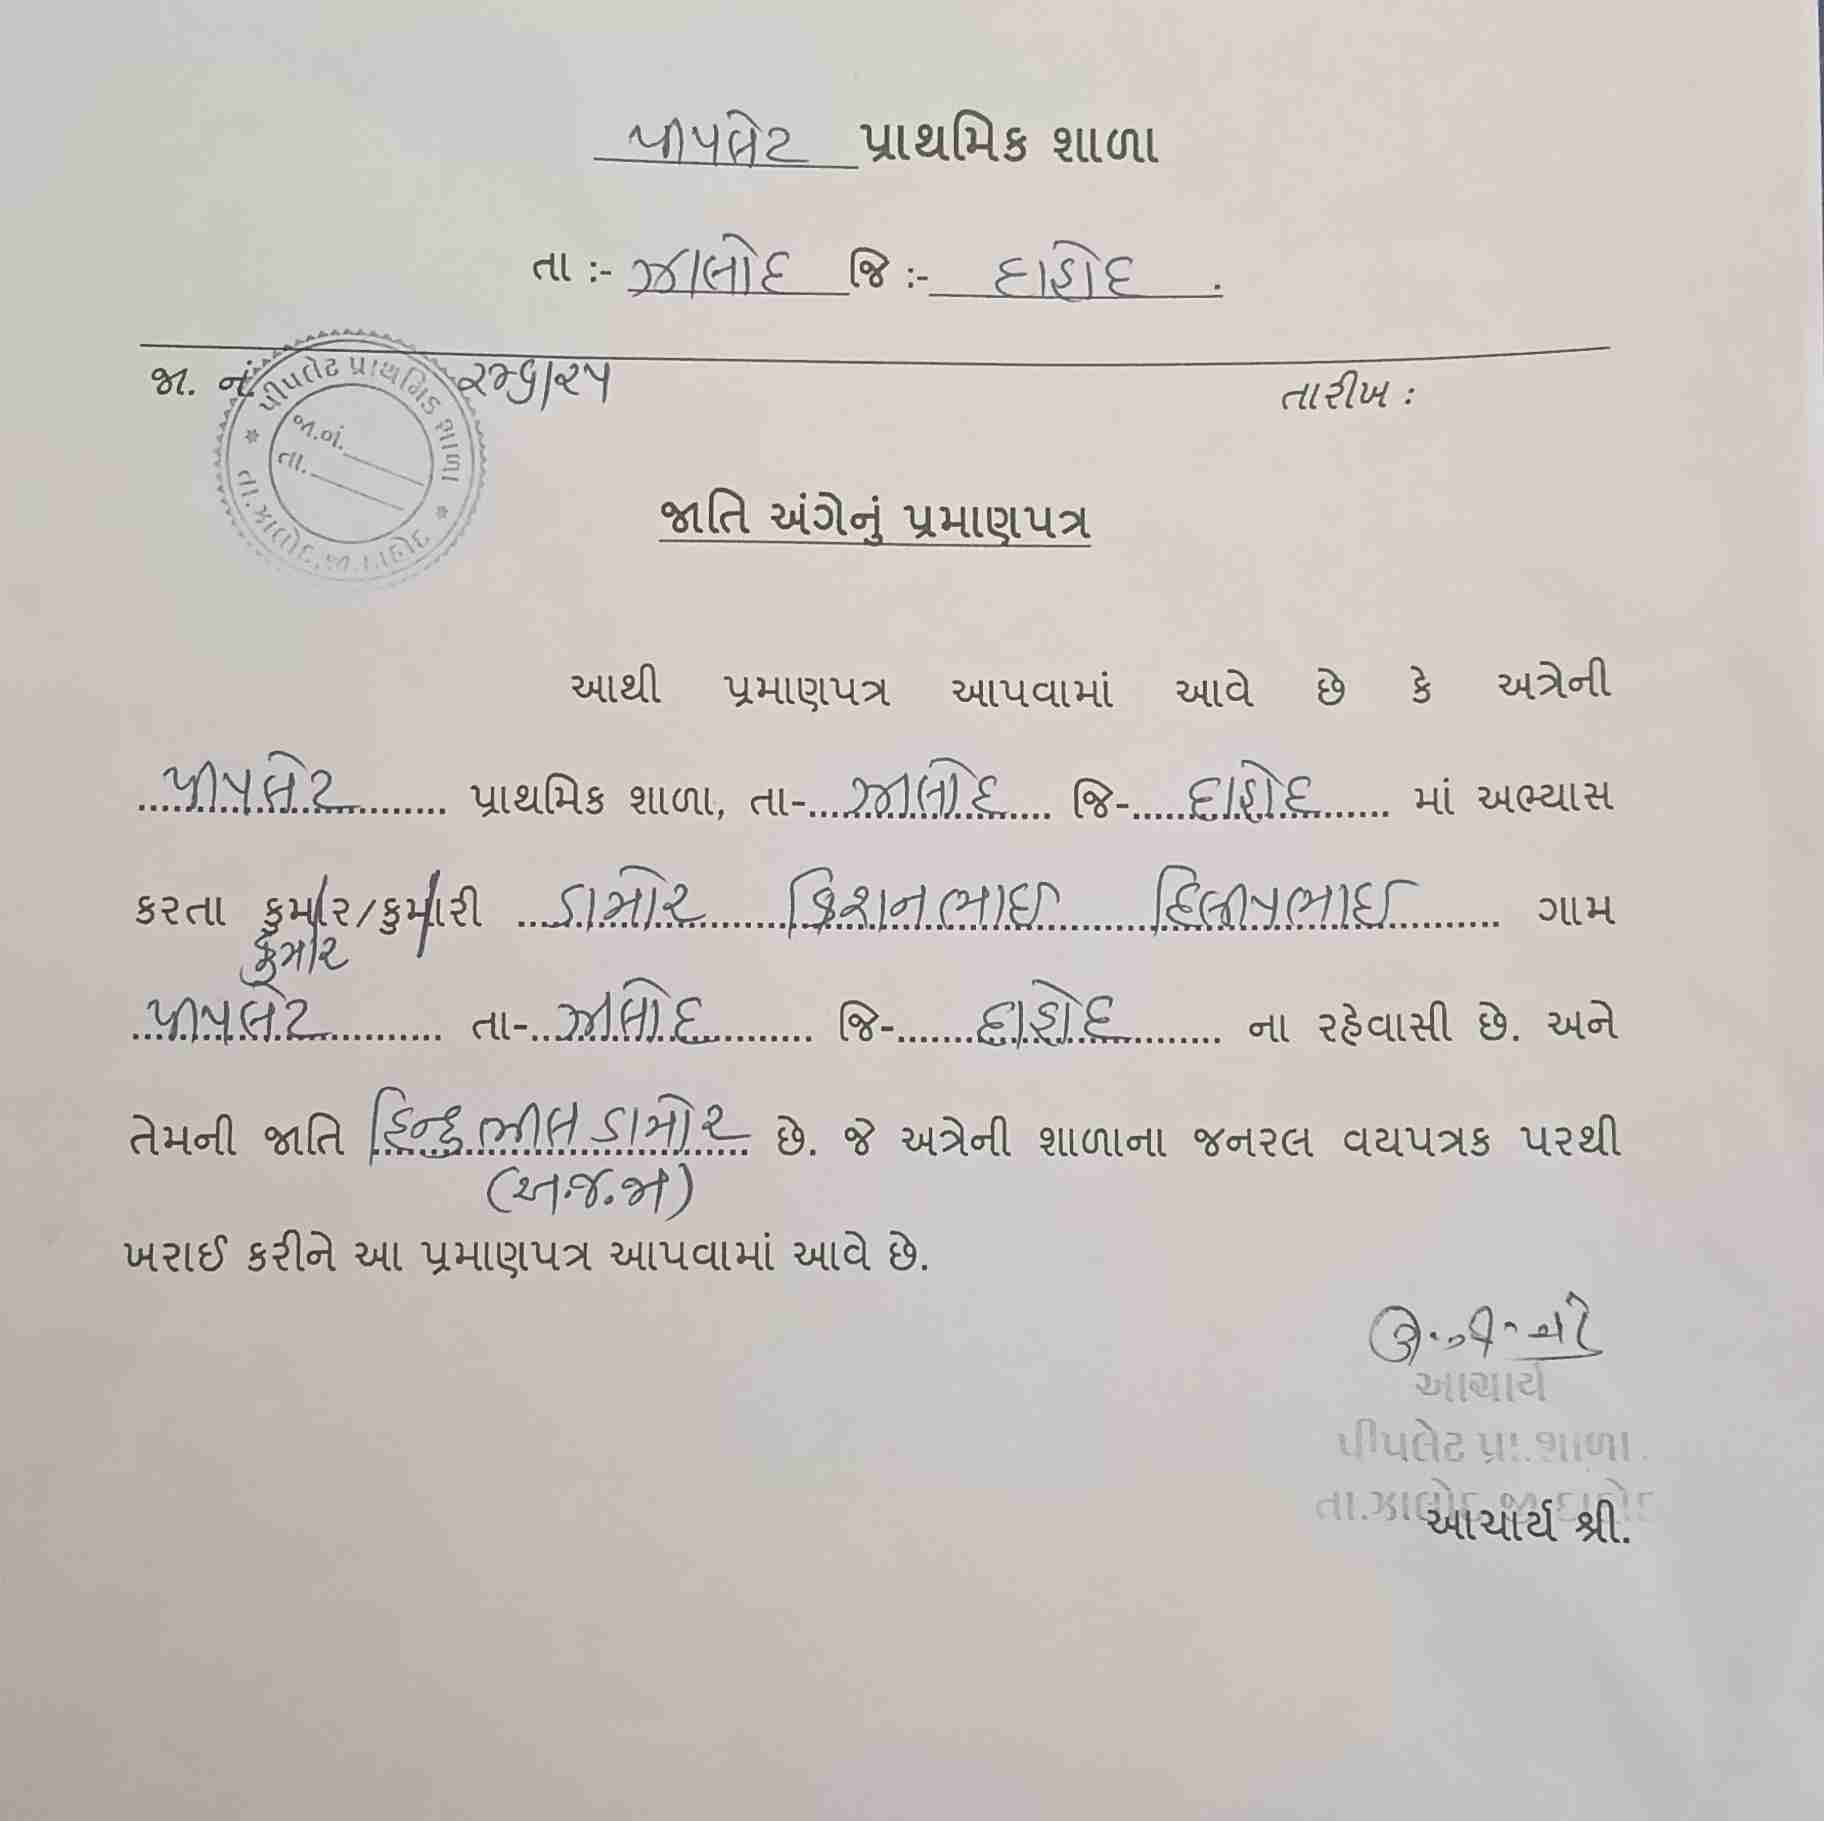 પીપલેટ પ્રાથમિક શાળા
તા :- ઝાલોદ જિ :- દાહોદ .
જા. નં ૨૫૬/૨૫ તારીખ :
પીપલેટ પ્રાથમિક શાળા
જા.નં.
તા.
જાતિ અંગેનું પ્રમાણપત્ર
આથી પ્રમાણપત્ર આપવામાં આવે છે કે અત્રેની
પીપલેટ પ્રાથમિક શાળા, તા- ઝાલોદ જિ- દાહોદ માં અભ્યાસ
કરતા કુમાર/કુમારી ડામોર કિશનભાઇ દિલીપભાઇ ગામ
કુમાર
પીપલેટ તા- ઝાલોદ જિ- દાહોદ ના રહેવાસી છે. અને
તેમની જાતિ હિન્દુ ભીલ ડામોર છે. જે અત્રેની શાળાના જનરલ વયપત્રક પરથી
(અ.જ.જા)
ખરાઈ કરીને આ પ્રમાણપત્ર આપવામાં આવે છે.
આચાર્ય
પીપલેટ પ્રા.શાળા.
તા.ઝાલોદ જી.દાહોદ
આચાર્ય શ્રી.